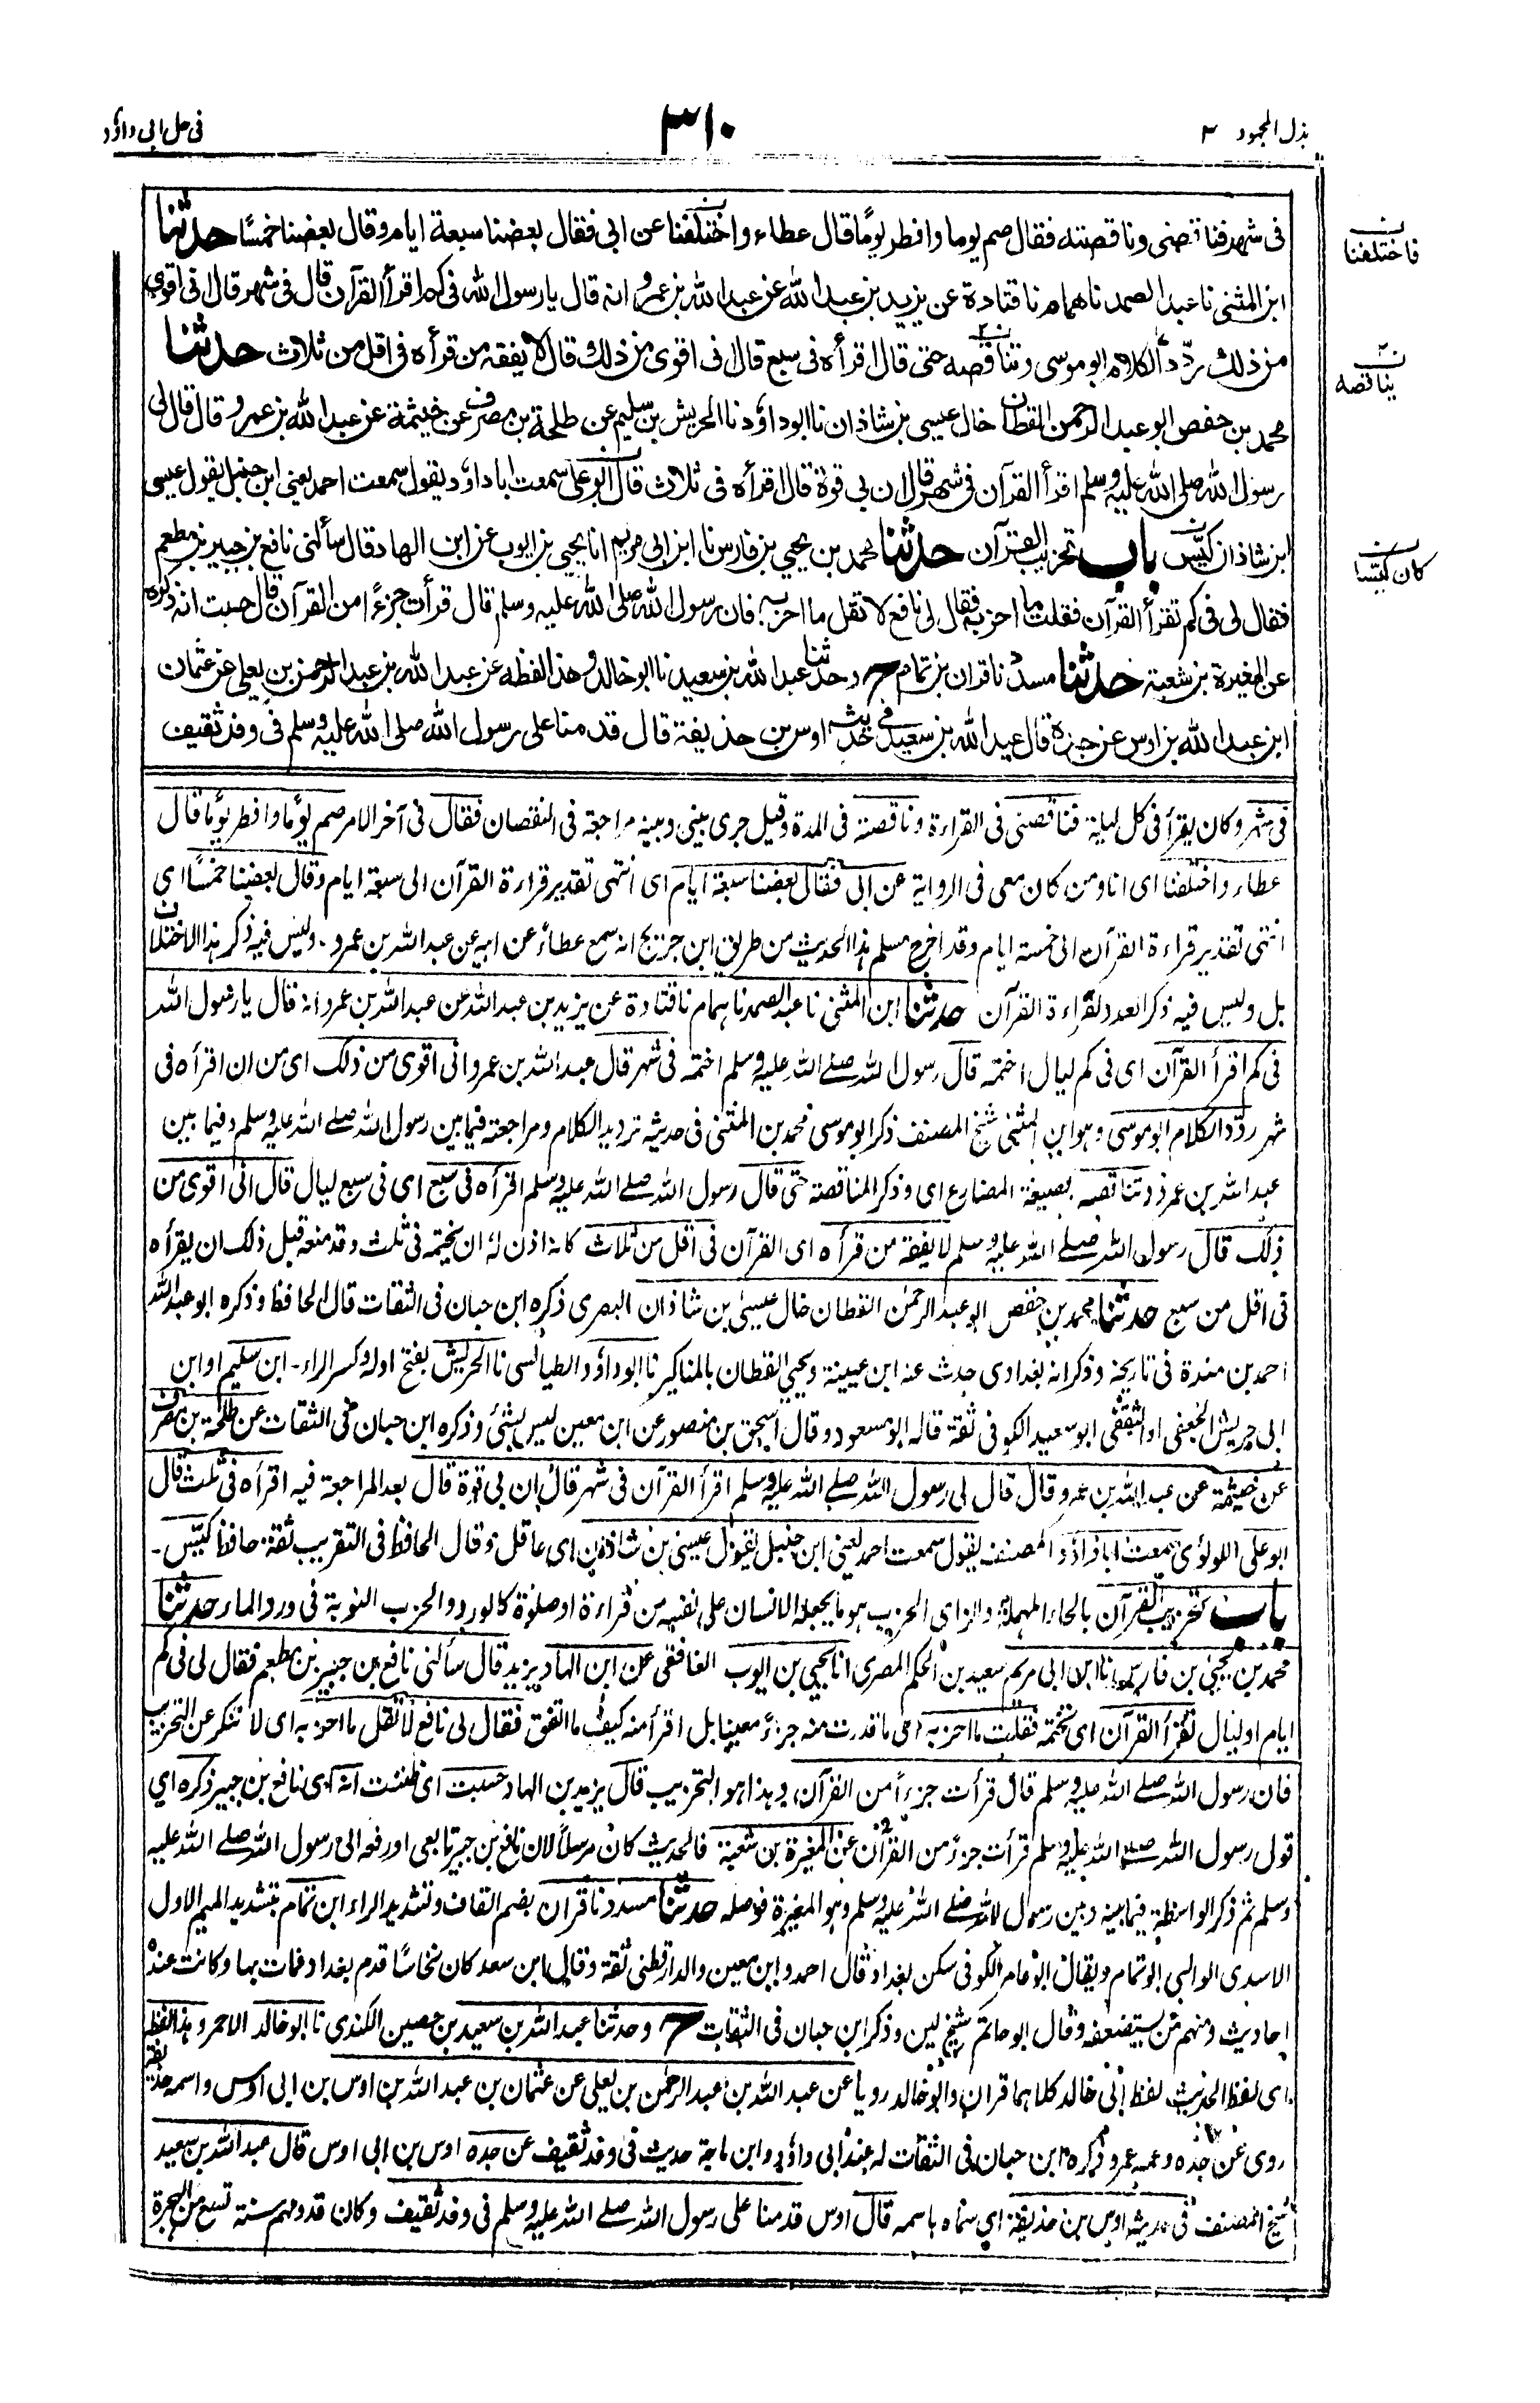 بذل المجهود ٣
٣١٠
في حل ابي داؤد
فى شهر فناقصنى وناقصته فقال صم يوما وافطر يومًا قال عطاء واختلفنا عن ابى فقال بعضنا سبعة ايام وقال بعضنا خمسًا حدثنا
ابن المثنى نا عبد الصمد نا همام نا قتادة عن يزيد بن عبد الله عن عبد الله بن عمرو انه قال يا رسول الله فى كم اقرأ القرآن قال فى شهر قال انى اقوى
من ذلك ردّد الكلام ابو موسى وتناقصه حتى قال اقرأه فى سبع قال انى اقوى من ذلك قال لا يفقه من قرأه فى اقل من ثلاث حدثنا
محمد بن حفص ابو عبد الرحمن القطان خال عيسى بن شاذان نا ابو داؤد نا الحريش بن سليم عن طلحة بن مصرف عن خيثمة عن عبد الله بن عمرو قال قال لى
رسول الله صلى الله عليه وسلم اقرأ القرآن فى شهر قال ان بى قوة قال اقرأه فى ثلاث قال ابو على سمعت ابا داؤد يقول سمعت احمد يعنى ابن حنبل يقول عيسى
ابن شاذان كيّس باب تحزيب القرآن حدثنا محمد بن يحيى بن فارس نا ابن ابى مريم انا يحيى بن ايوب عن ابن الهاد قال سألنى نافع بن جبير بن مطعم
فقال لى فى كم تقرأ القرآن فقلت ما احزبه فقال لى نافع لا تقل ما احزبه فان رسول الله صلى الله عليه وسلم قال قرأت جزءًا من القرآن قال حسبت انه ذكره
عن المغيرة بن شعبة حدثنا مسدد نا قران بن تمام ح وحدثنا عبد الله بن سعيد نا ابو خالد وهذا لفظه عن عبد الله بن عبد الرحمن بن يعلى عن عثمان
ابن عبد الله بن اوس عن جده قال عبد الله بن سعيد فى حديثه اوس بن حذيفة قال قدمنا على رسول الله صلى الله عليه وسلم فى وفد ثقيف
فاختلفنا
يناقصه
كان كيّسا
فى شهر وكان يقرأ فى كل ليلة فناقصنى فى القراءة وناقصته فى المدة وقيل جرى بينى وبينه مراجعة فى النقصان فقال فى آخر الامر صم يومًا وافطر يومًا قال
عطاء واختلفنا اى انا ومن كان معى فى الرواية عن ابى فقال بعضنا سبعة ايام اى انتهى تقدير قراءة القرآن الى سبعة ايام وقال بعضنا خمسًا اى
انتهى تقدير قراءة القرآن الى خمسة ايام وقد اخرج مسلم هذا الحديث من طريق ابن جريج انه سمع عطاء عن ابيه عن عبد الله بن عمرو. وليس فيه ذكر هذا الاختلاف
بل وليس فيه ذكر العدد لقراءة القرآن حدثنا ابن المثنى نا عبد الصمد نا همام نا قتادة عن يزيد بن عبد الله عن عبد الله بن عمرو انه قال يا رسول الله
فى كم اقرأ القرآن اى فى كم ليال اختمه قال رسول الله صلے الله عليه وسلم اختمه فى شهر قال عبد الله بن عمرو انى اقوى من ذلك اى من ان اقرأه فى
شهر ردّد الكلام ابو موسى وهو ابن المثنى شيخ المصنف ذكر ابو موسى محمد بن المثنى فى حديثه ترديد الكلام ومراجعته فيما بين رسول الله صلے الله عليه وسلم وفيما بين
عبد الله بن عمرو وتناقصه بصيغة المضارع اى وذكر المناقصة حتى قال رسول الله صلے الله عليه وسلم اقرأه فى سبع اى فى سبع ليال قال انى اقوى من
ذلك قال رسول الله صلے الله عليه وسلم لا يفقه من قرأه اى القرآن فى اقل من ثلاث كانه اذن له ان يختمه فى ثلث وقد منعه قبل ذلك ان يقرأه
فى اقل من سبع حدثنا محمد بن حفص ابو عبد الرحمن القطان خال عيسى بن شاذان البصرى ذكره ابن حبان فى الثقات قال الحافظ وذكره ابو عبد الله
احمد بن مندة فى تاريخه وذكر انه بغدادى حدث عنه ابن عيينة ويحيى القطان بالمناكير نا ابو داؤد الطيالسى نا الحريش بفتح اوله وكسر الراء - ابن سليم او ابن
ابى حريش الجعفى او الثقفى ابو سعيد الكوفى ثقة قاله ابو مسعود وقال اسحق بن منصور عن ابن معين ليس بشئ وذكره ابن حبان فى الثقات عن طلحة بن مصرف
عن خيثمة عن عبد الله بن عمرو قال قال لى رسول الله صلے الله عليه وسلم اقرأ القرآن فى شهر قال ان بى قوة قال بعد المراجعة فيه اقرأه فى ثلث قال
ابو على اللؤلؤى سمعت ابا داؤد المصنف يقول سمعت احمد يعنى ابن حنبل يقول عيسى بن شاذان اى عاقل وقال الحافظ فى التقريب ثقة حافظ كيّس -
باب تحزيب القرآن بالحاء المهملة والزاى الحزب هو ما يجعله الانسان على نفسه من قراءة او صلوة كالورد والحزب النوبة فى ورد الماء حدثنا
محمد بن يحيى بن فارس نا ابن ابى مريم سعيد بن الحكم المصرى انا يحيى بن ايوب الغافقى عن ابن الهاد يزيد قال سألنى نافع بن جبير بن مطعم فقال لى فى كم
ايام او ليال تقرأ القرآن اى تختمه فقلت ما احزبه اى ما قدرت منه جزءً معينا بل اقرأ منه كيف ما اتفق فقال لى نافع لا تقل ما احزبه اى لا تنكر عن التحزيب
فان رسول الله صلے الله عليه وسلم قال قرأت جزءاً من القرآن، وهذا هو التحزيب قال يزيد بن الهاد حسبت اى ظننت انه اى نافع بن جبير ذكره اى
قول رسول الله صلے الله عليه وسلم قرأت جزءً من القرآن عن المغيرة بن شعبة فالحديث كان مرسلاً لان نافع بن جبير تابعى اورفعه الى رسول الله صلے الله عليه
وسلم ثم ذكر الواسطة فيما بينه وبين رسول الله صلے الله عليه وسلم وهو المغيرة فوصله حدثنا مسدد نا قران بضم القاف وتشديد الراء ابن تمام بتشديد الميم الاول
الاسدى الوالبى ابو تمام ويقال ابو عامر الكوفى سكن بغداد قال احمد وابن معين والدارقطنى ثقة وقال ابن سعد كان نخاسًا قدم بغداد فمات بها وكانت عنده
احاديث ومنهم من يستضعفه وقال ابو حاتم شيخ لين وذكر ابن حبان فى الثقات ح وحدثنا عبد الله بن سعيد بن حصين الكندى نا ابو خالد الاحمر وهذا لفظه
اى لفظ الحديث لفظ ابى خالد كلاهما قران وابو خالد رويا عن عبد الله بن عبد الرحمن بن يعلى عن عثمان بن عبد الله بن اوس بن ابى اوس واسمه حذيفة
روى عن جده وعمه عمرو ذكره ابن حبان فى الثقات له عند ابى داؤد وابن ماجة حديث فى وفد ثقيف عن جده اوس بن ابى اوس قال عبد الله بن سعيد
شيخ المصنف فى حديثه اوس بن حذيفة اى سماه باسمه قال اوس قدمنا على رسول الله صلے الله عليه وسلم فى وفد ثقيف وكان قدومهم سنة تسع من الهجرة